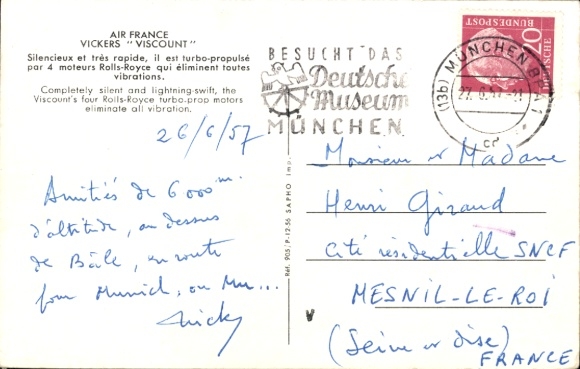 AIR FRANCE
VICKERS "VISCOUNT"
Silencieux et très rapide, il est turbo-propulsé
par 4 moteurs Rolls-Royce qui éliminent toutes
vibrations.
Completely silent and lightning-swift, the
Viscount's four Rolls-Royce turbo-prop motors
eliminate all vibration.
26/6/57
Amitiés de 6000 m.
d'altitude, au dessus
de Bâle, en route
pour Munich, ou Mu...
Réf. 905/P-12-55 SAPHO Imp.
BESUCHT DAS
Deutsche
Museum
MÜNCHEN
(13b) MÜNCHEN BPA 1
27.6.57
cr
20
DEUTSCHE
BUNDESPOST
Monsieur et Madame
Henri Giraud
Cité résidentielle SNCF
MESNIL-LE-ROI
(Seine et Oise)
FRANCE